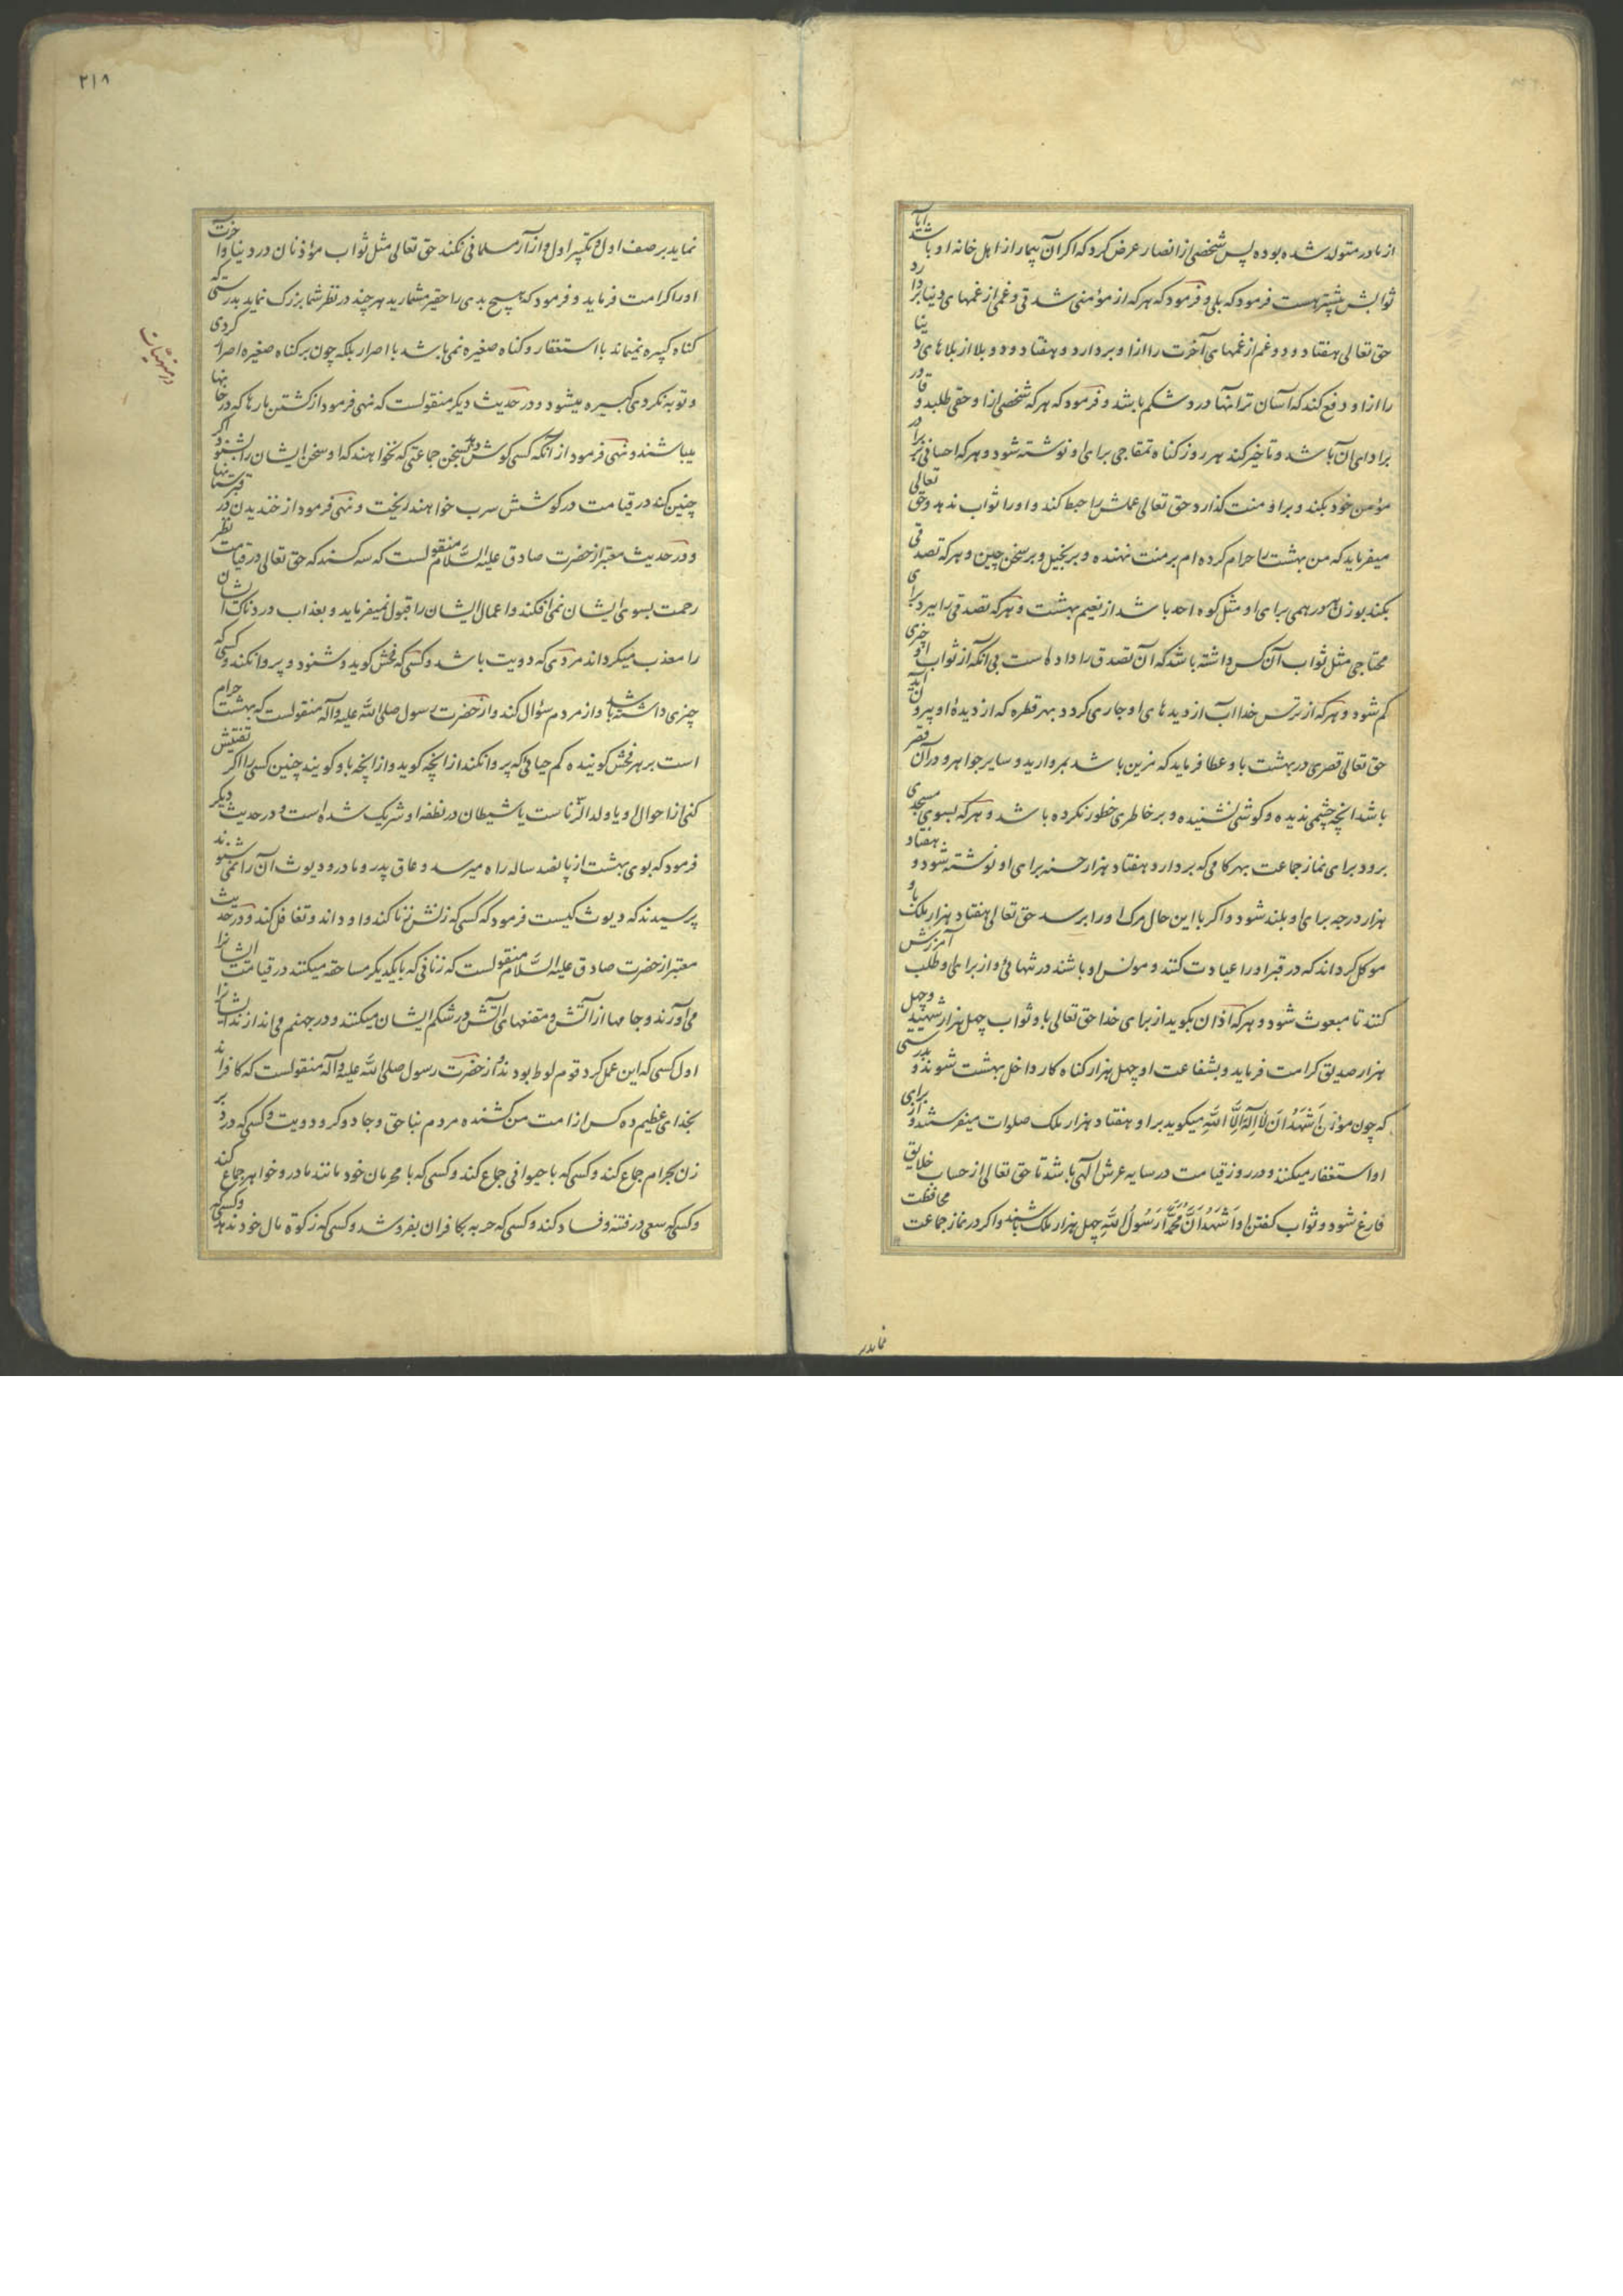 از مادر متولد شده بوده پس شخصی از انصار عرض کرد که اگر آن بیمار از اهل خانه او باشد آیا
ثوابش بیشتر هست فرمود که بلی و فرمود که هر که از مؤمنی شدتی و غمی از غمهای دنیا بردارد
حق تعالی هفتاد و دو غم از غمهای آخرت را از او بردارد و هفتاد و دو بلا از بلاهای دنیا
را از او دفع کند که آسان ترانها درد شکم باشد و فرمود که هر که شخصی از او حقی طلبد و قادر
بر ادای ان باشد و تاخیر کند هر روز گناه تمقاجی برای او نوشته شود و هر که احسانی ببرادر
مؤمن خود بکند و بر او منت گذارد حق تعالی عملش را حبط کند و او را ثواب ندهد و حق تعالی
میفرماید که من بهشت را حرام کرده ام بر منت نهنده و بر بخیل و بر سخن چین و هر که تصدقی
بکند بوزن هر درهمی برای او مثل کوه احد باشد از نعیم بهشت و هر که تصدقی را ببرد برای
محتاجی مثل ثواب آن کس داشته باشد که آن تصدق را داده است بی انکه از ثواب او چیزی
کم شود و هر که از ترس خدا اب از دیده های او جاری گردد بهر قطره که از دیده او بیرون آید
حق تعالی قصری در بهشت باو عطا فرماید که مزین باشد بمروارید و سایر جواهر و در آن قصر
باشد انچه چشمی ندیده و گوشی نشنیده و بر خاطری خطور نکرده باشد و هر که بسوی مسجدی
برود برای نماز جماعت بهر کامی که بردارد هفتاد هزار حسنه برای او نوشته شود و هفتاد
هزار درجه برای او بلند شود و اگر با این حال مرگ او را برسد حق تعالی هفتاد هزار ملک باو
موکل گرداند که در قبر او را عیادت کنند و مونس او باشند در تنهائی و از برای او طلب آمرزش
کنند تا مبعوث شود و هر که اذان بگوید از برای خدا حق تعالی باو ثواب چهل هزار شهید و چهل
هزار صدیق کرامت فرماید و بشفاعت او چهل هزار گناه کار داخل بهشت شوند و بدرستی
که چون مؤذن اَشْهَدُ اَنْ لا اِلهَ اِلَّا اللهُ میگوید بر او هفتاد هزار ملک صلوات میفرستند و از برای
او استغفار میکنند و در روز قیامت در سایه عرش الهی باشد تا حق تعالی از حساب خلایق
فارغ شود و ثواب گفتن او اَشْهَدُ اَنَّ مُحَمَّداً رَسُولُ اللهِ چهل هزار ملک بنویسند و اگر در نماز جماعت محافظت
نماید بر
۲۱۸
نماید بر صف اول و تکبیر اول و از آزار مسلمانی نکند حق تعالی مثل ثواب مؤذنان در دنیا و آخرت
او را کرامت فرماید و فرمود که هیچ بدی را حقیر مشمارید هر چند در نظر شما بزرگ نماید بدرستی که
گناه کبیره نمیماند با استغفار و گناه صغیره نمی باشد با اصرار بلکه چون بر گناه صغیره اصرار کردی
و توبه نکردی کبیره میشود و در حدیث دیگر منقولست که نهی فرمود از کشتن مارها که در خانها
میباشند و نهی فرمود از آنکه کسی گوش دهد بسخن جماعتی که نخواهند که او سخن ایشان را بشنود و اگر
چنین کند در قیامت در گوشش سرب خواهند ریخت و نهی فرمود از خندیدن در قبرستانها
و در حدیث معتبر از حضرت صادق علیه السَّلام منقولست که سه کسند که حق تعالی در قیامت نظر
رحمت بسوی ایشان نمی افکند و اعمال ایشان را قبول نمیفرماید و بعذاب دردناک ایشان
را معذب میگرداند مردی که دویت باشد و کسی که فحش گوید و شنود و پروا نکند و کسی که
چیزی داشته باشد و از مردم سؤال کند و از حضرت رسول صلی الله علیه و آله منقولست که بهشت حرام
است بر هر فحش گوینده کم حیائی که پروا نکند از انچه گوید و از انچه باو گویند چنین کسی را اگر تفتیش
کنی از احوال او یا ولد الزّناست یا شیطان در نطفه او شریک شده است و در حدیث دیگر
فرمود که بوی بهشت از پانصد ساله راه میرسد و عاق پدر و مادر و دیوث آن را نمی شنوند
پرسیدند که دیوث کیست فرمود که کسی که زنش زنا کند و او داند و تغافل کند و در حدیث
معتبر از حضرت صادق علیه السَّلام منقولست که زنانی که با یکدیگر مساحقه میکنند در قیامت ایشانرا
می آورند و جامها از آتش و مقنعهای آتش در شکم ایشان میکنند و در جهنم می اندازند ایشانرا
اول کسی که این عمل کرد قوم لوط بودند و از حضرت رسول صلی الله علیه و آله منقولست که کافراند
بخدای عظیم ده کس از امت من کشنده مردم بناحق و جادوگر و دویت و کسی که در دبر
زن بحرام جماع کند و کسی که با حیوانی جماع کند و کسی که با محرمان خود مانند مادر و خواهر جماع کند
و کسی که سعی در فتنه و فساد کند و کسی که حربه بکافران بفروشد و کسی که زکوة مال خود ندهد و کسی که
در منهیات